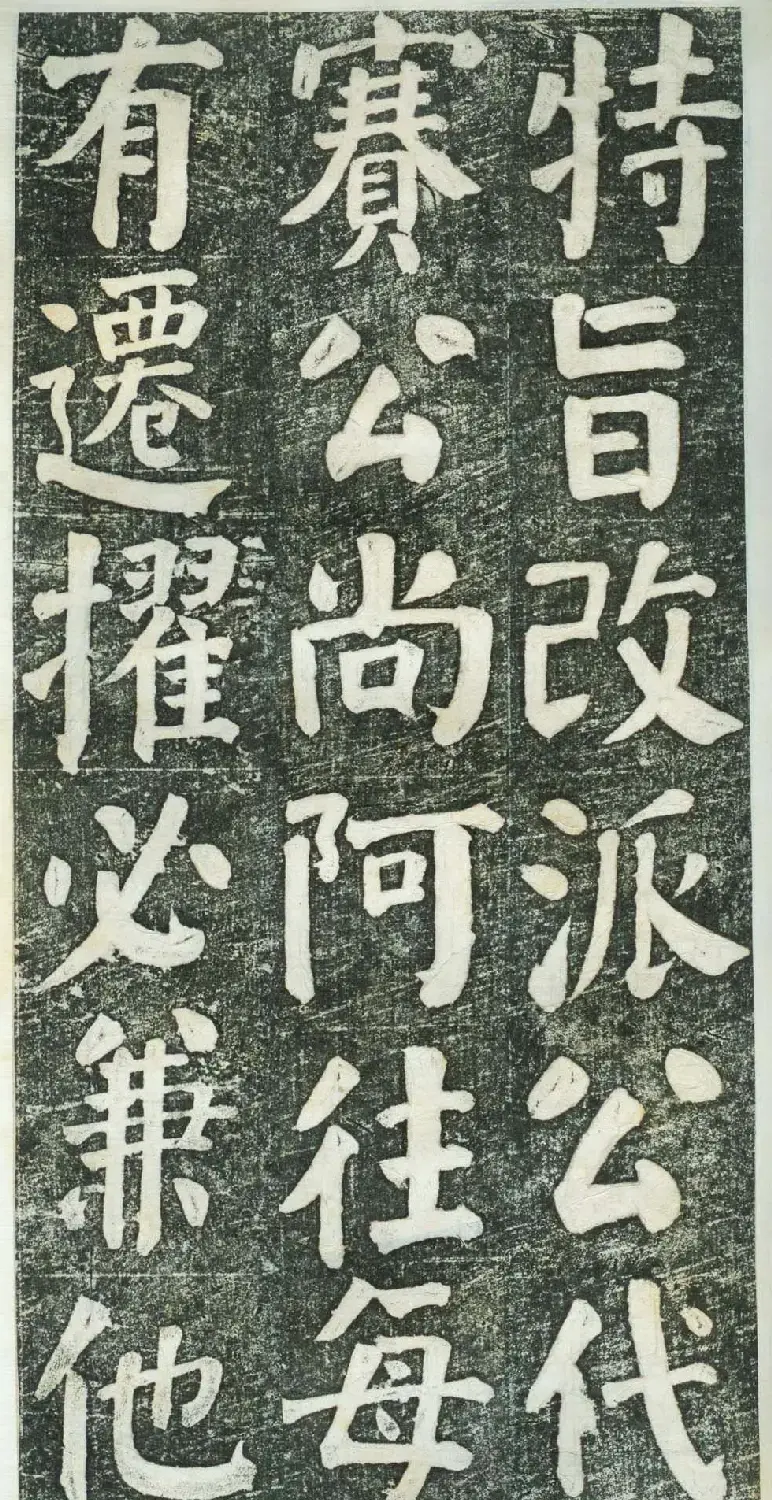 特旨改派公代
賽公尚阿往每
有遷擢必兼他